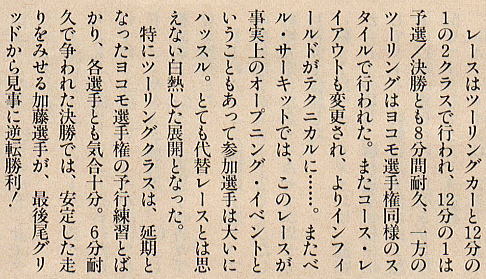 レースはツーリングカーと12分の
1の2クラスで行われ、12分の1は
予選／決勝とも8分間耐久、一方の
ツーリングはヨコモ選手権同様のス
タイルで行われた。またコース・レ
イアウトも変更され、よりインフィ
ールドがテクニカルに……。またベ
ル・サーキットでは、このレースが
事実上のオープニング・イベントと
いうこともあって参加選手は大いに
ハッスル。とても代替レースとは思
えない白熱した展開となった。
　特にツーリングクラスは、延期と
なったヨコモ選手権の予行練習とば
かり、各選手とも気合十分。6分耐
久で争われた決勝では、安定した走
りをみせる加藤選手が、最後尾グリ
ッドから見事に逆転勝利！